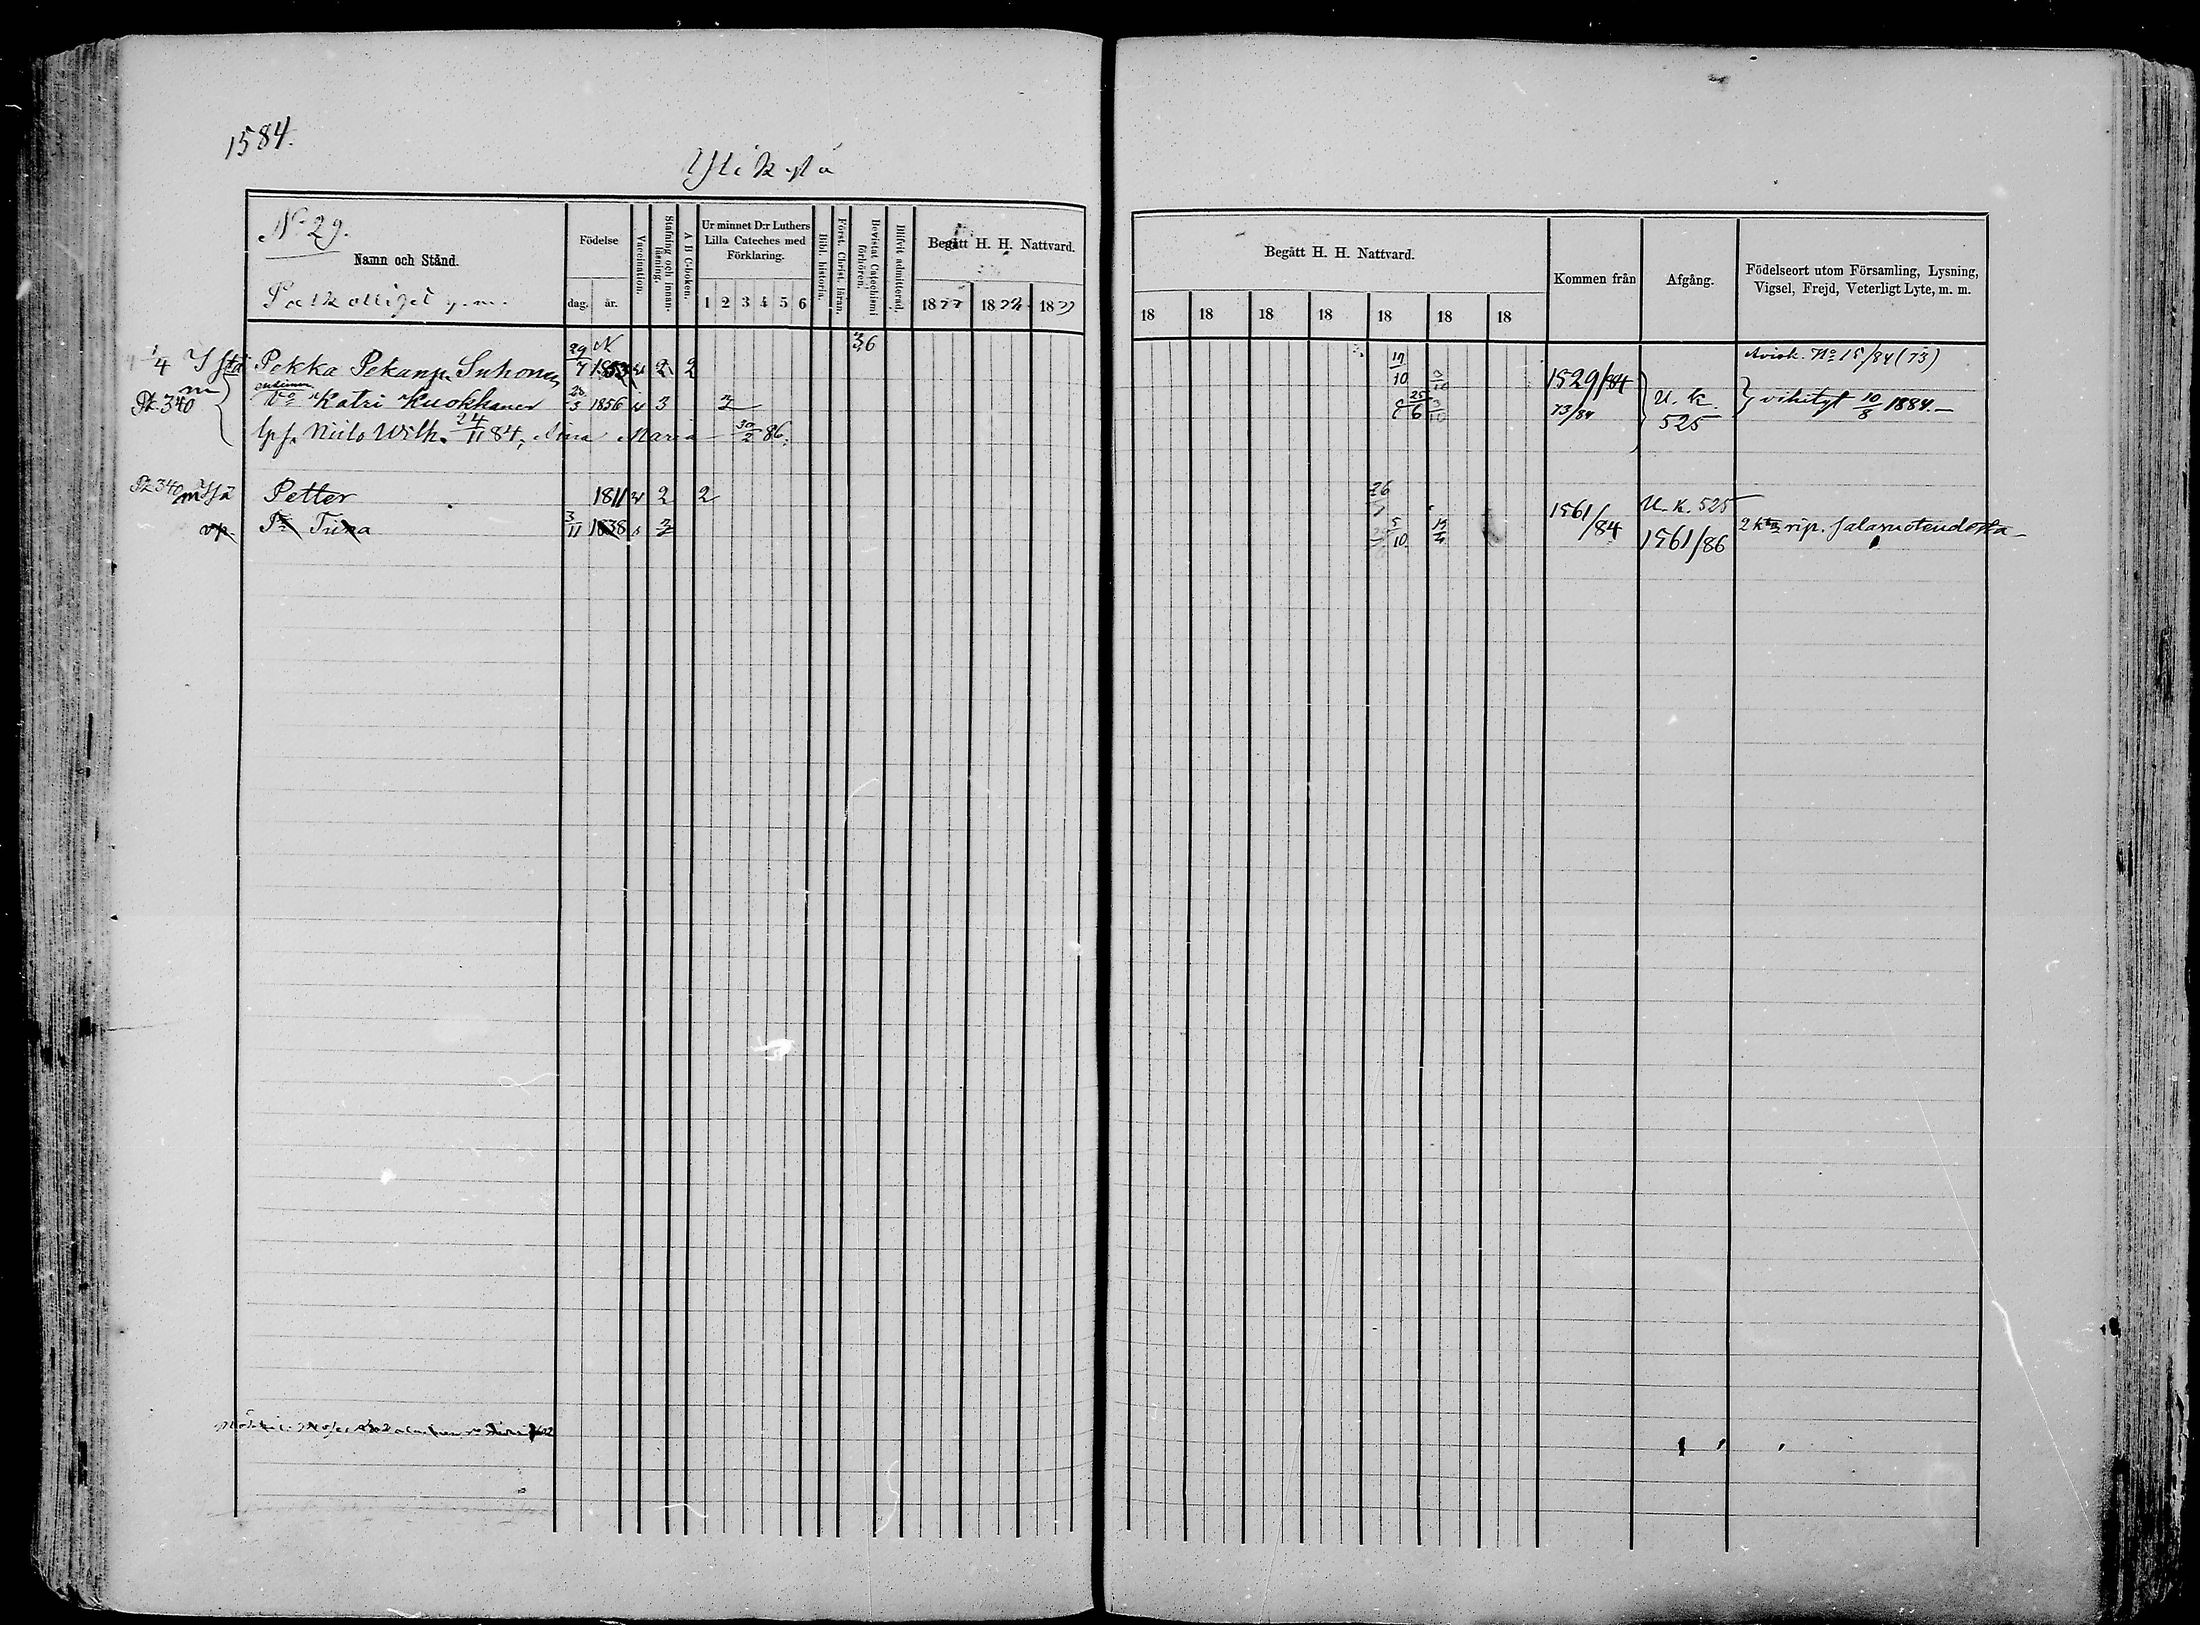 1584.
Ylikylä
No 29.
Namn och Stånd.
Födelse
dag. år.
Vaccination.
Stafning och innan-läsning.
A B C-boken.
Ur minnet D:r Luthers Lilla Cateches med Förklaring.
1 2 3 4 5 6
Bibl. historia.
Först. Christ. läran.
Bevistat Catechismi förhören.
Blifvit admitterad.
Begått H. H. Nattvard.
1877 1878 1879
Begått H. H. Nattvard.
18 18 18 18 18 18 18
Kommen från
Afgång.
Födelseort utom Församling, Lysning, Vigsel, Frejd, Veterligt Lyte, m. m.
36
Pekka Pekanp. Suhonen 29/7 1853 2 2 17/10 1529/84 Avisk. No 15/84 (73)
Pk 340 Vo Katri Kuokkanen 1856 3 2 25/6 73/84 U. k. 525 vihityt 10/3 1884.-
lps. Niilo Wilh. 24/11 84, Aina Maria 30/2 86.
Pk 340 Petter 1811 2 2 26 1561/84 U. k. 525
Trina 3/11 1838 5/10 1561/86 2 kta rip. salavuoteudesta